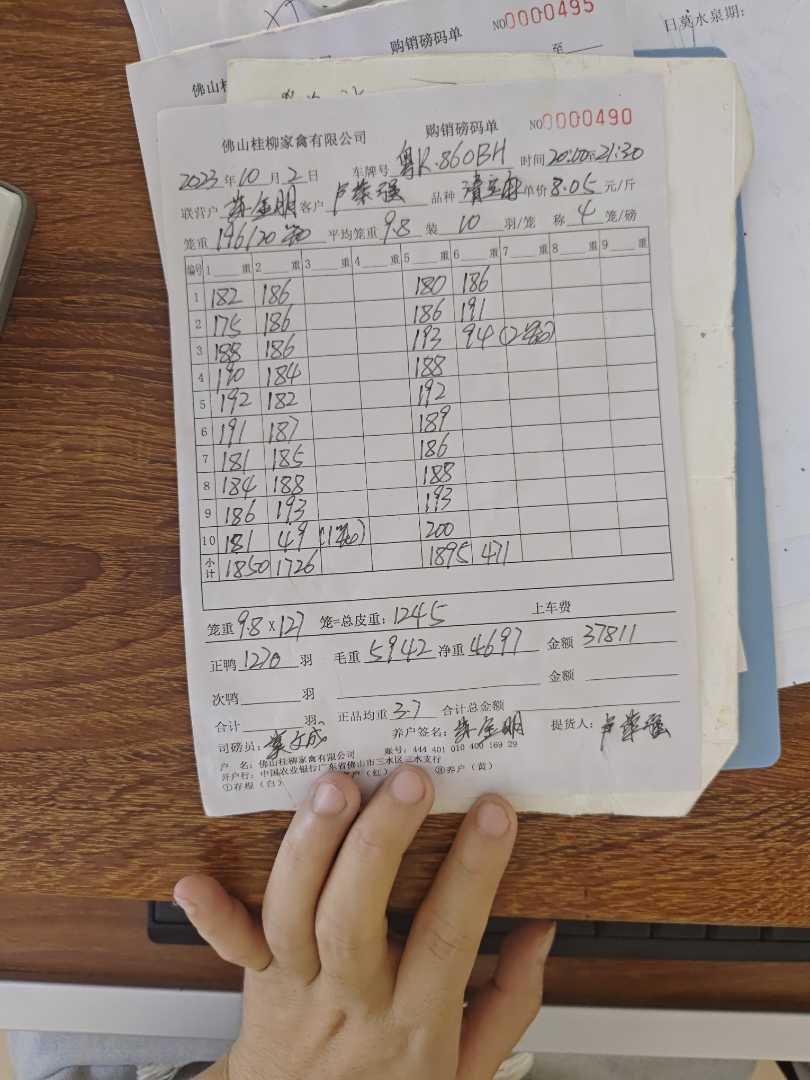 日莫水泉期:
购销磅码单 NO0000495
至
佛山桂
佛山桂柳家禽有限公司 购销磅码单 NO0000490
2023年10月2日 车牌号粤K·860BH 时间20:00至21:30
联营户 金明 客户 卢荣强 品种 单价 8.05 元/斤
笼重 196/20笼 平均笼重 9.8 装 10 羽/笼 称 4 笼/磅
编号 1 重 2 重 3 重 4 重 5 重 6 重 7 重 8 重 9 重
1 182 186 180 186
2 175 186 186 191
3 188 186 193 94 (2笼)
4 190 184 188
5 192 182 192
6 191 187 189
7 181 185 186
8 184 188 188
9 186 193 193
10 181 49 (1笼) 200
小计 1850 1726 1895 471
笼重 9.8 x 127 笼=总皮重: 1245 上车费
正鸭 1270 羽 毛重 5942 净重 4697 金额 37811
次鸭 羽 金额
合计 羽 正品均重 3.7 合计总金额
司磅员: 养户签名: 金明 提货人: 卢荣强
户 名: 佛山桂柳家禽有限公司 账号: 444 401 010 400 169 29
开户行: 中国农业银行广东省佛山市三水区三水支行
①存根(白) 户(红) 养户(黄)